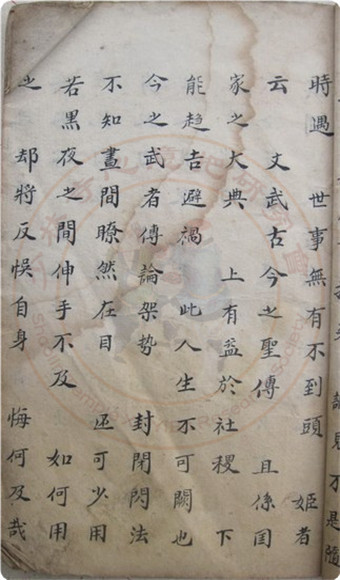 時遇 世事無有不到頭 姫者
云 文武古今之聖傳 且係国
家之大典 上有益於社稷 下
能趋吉避禍 此人生不可闕也
今之武者傳論架势 封閉閃法
不知晝間瞭然在目 还可少用
若黑夜之間伸手不及 如何用
之 却將反悞自身 悔何及哉